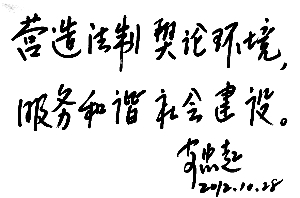 营造法制舆论环境，
服务和谐社会建设。
2012.10.28